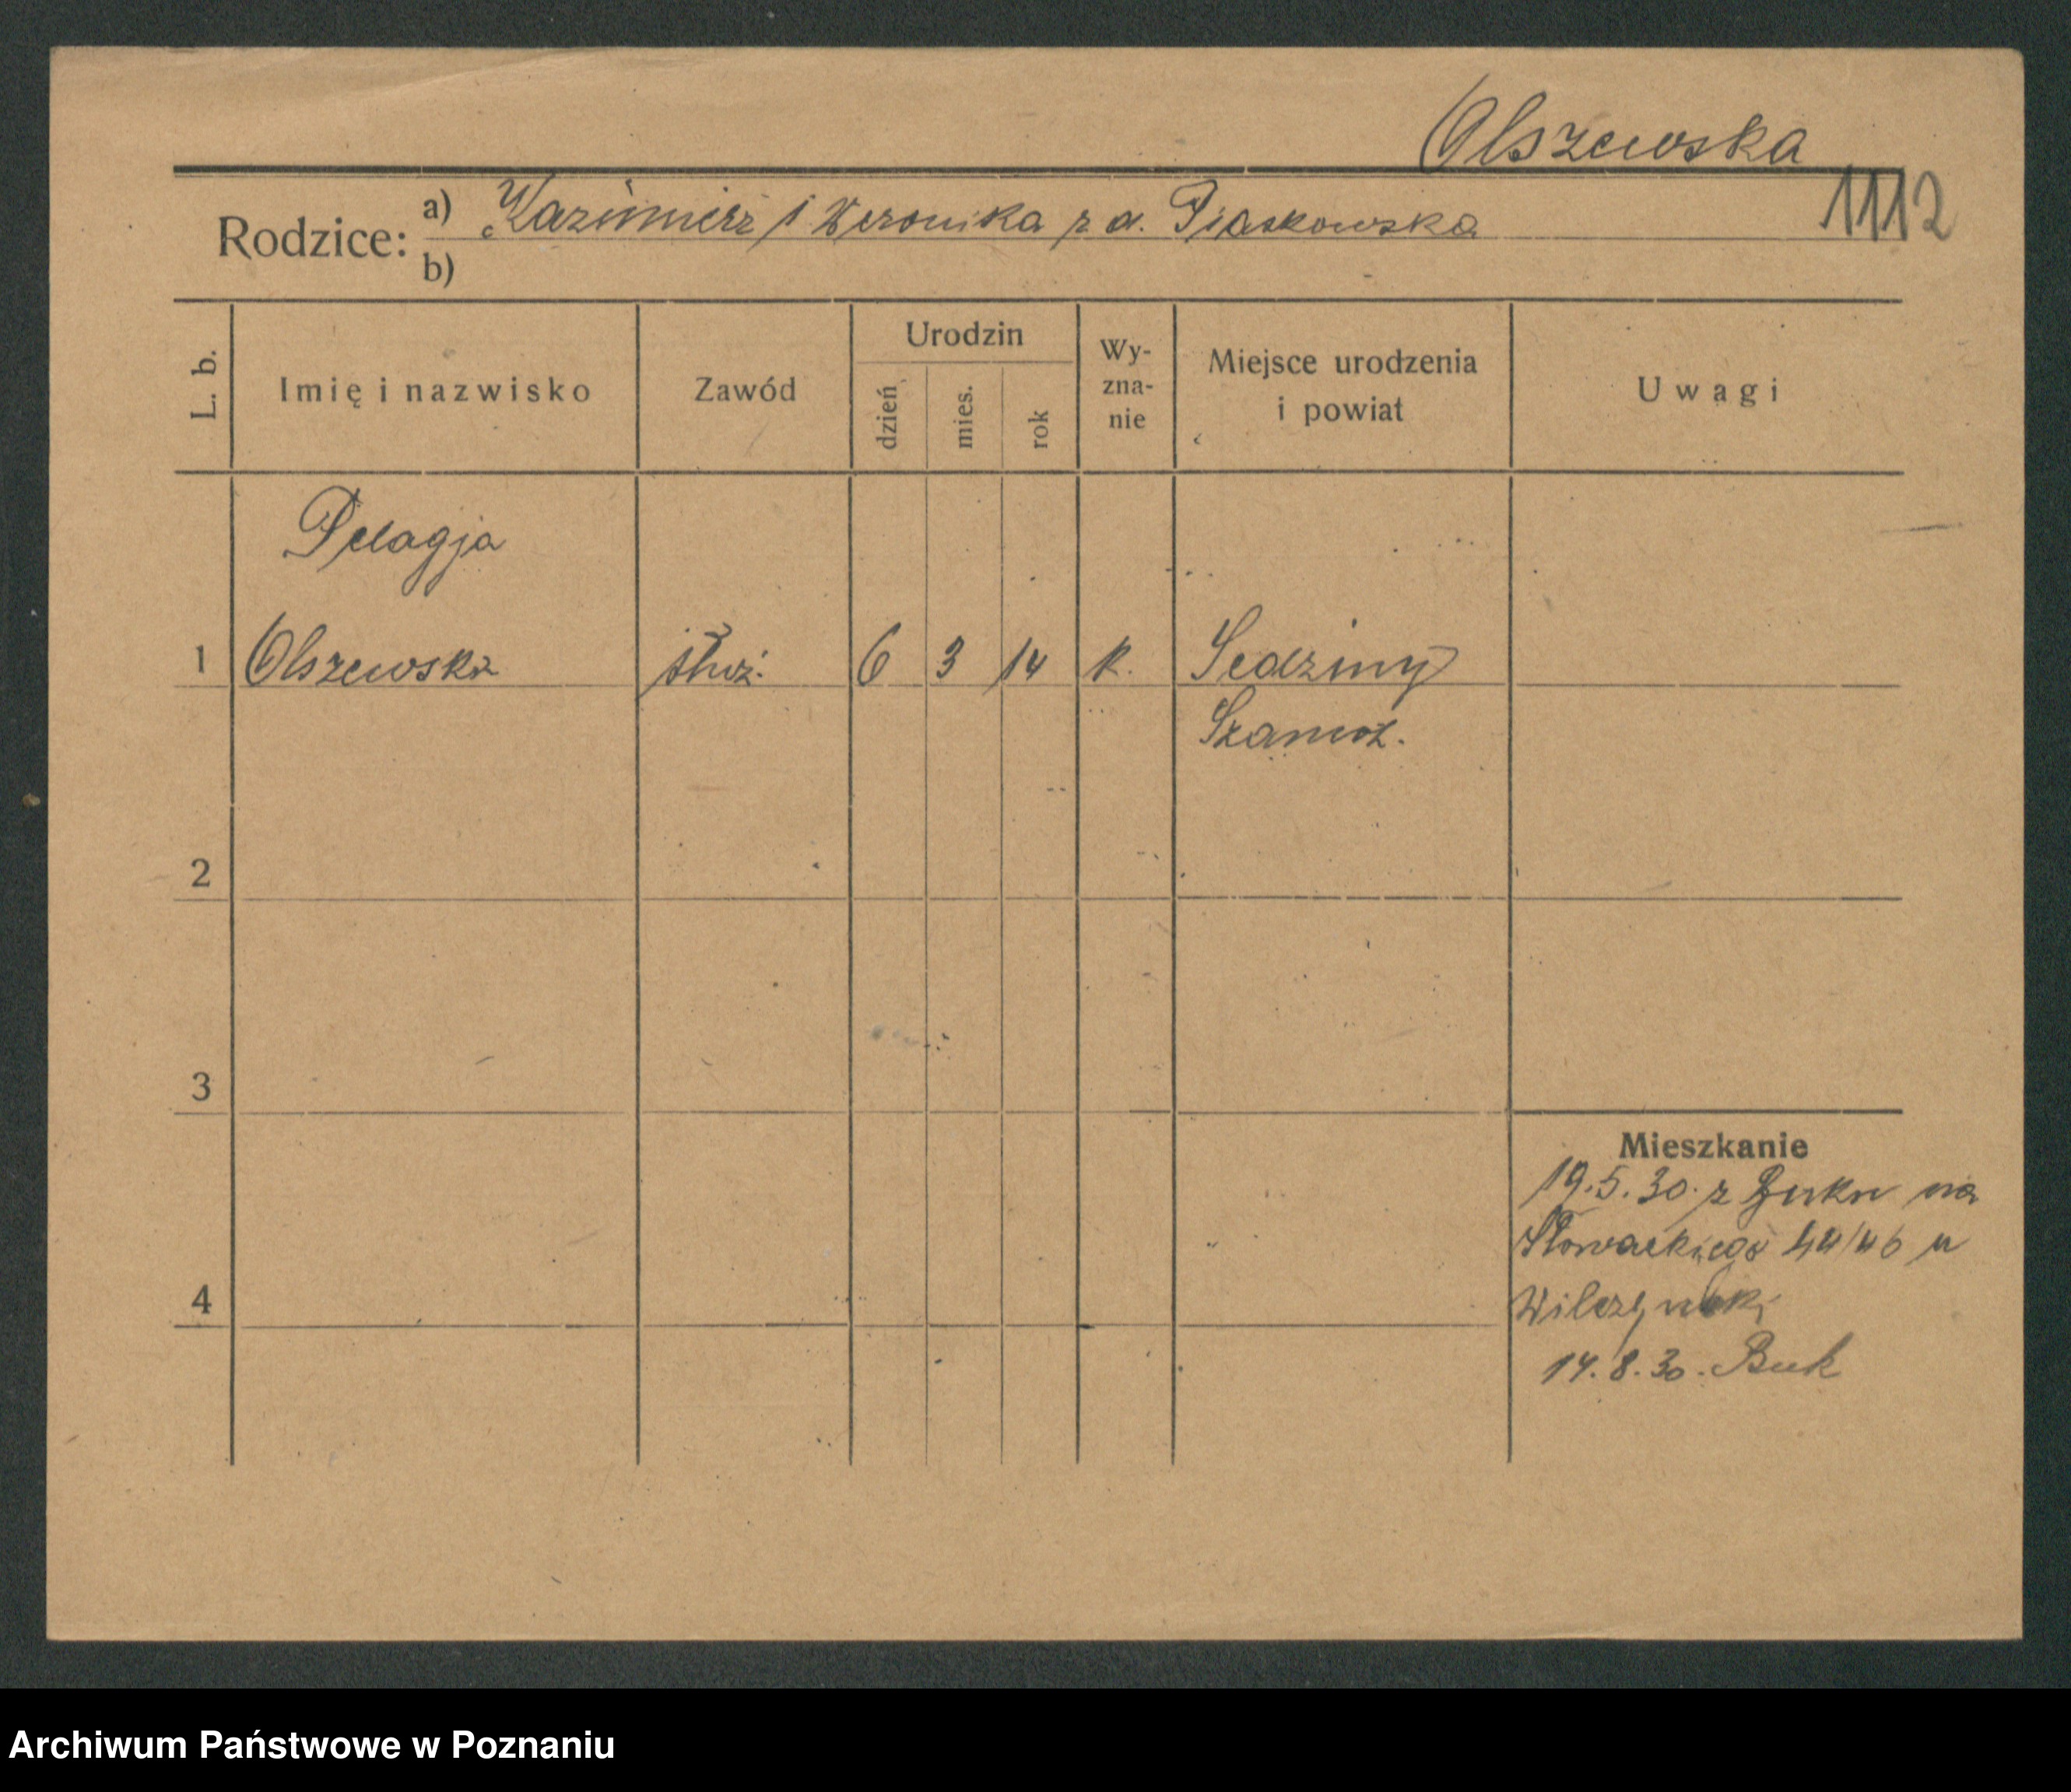 Olszewska
1112
Rodzice: a) Kazimierz i Weronika z d. Piaskowska
b)
L. b.
Imię i nazwisko
Zawód
Urodzin
dzień
mies.
rok
Wy-
zna-
nie
Miejsce urodzenia
i powiat
Uwagi
Pelagja
1 Olszewska służ. 6 3 14 k. Sędziny
Szamot.
2
3
Mieszkanie
19.5.30. z Buku na
Słowackiego 44/46 u
4
Wilczyński
14.8.30. Buk
Archiwum Państwowe w Poznaniu